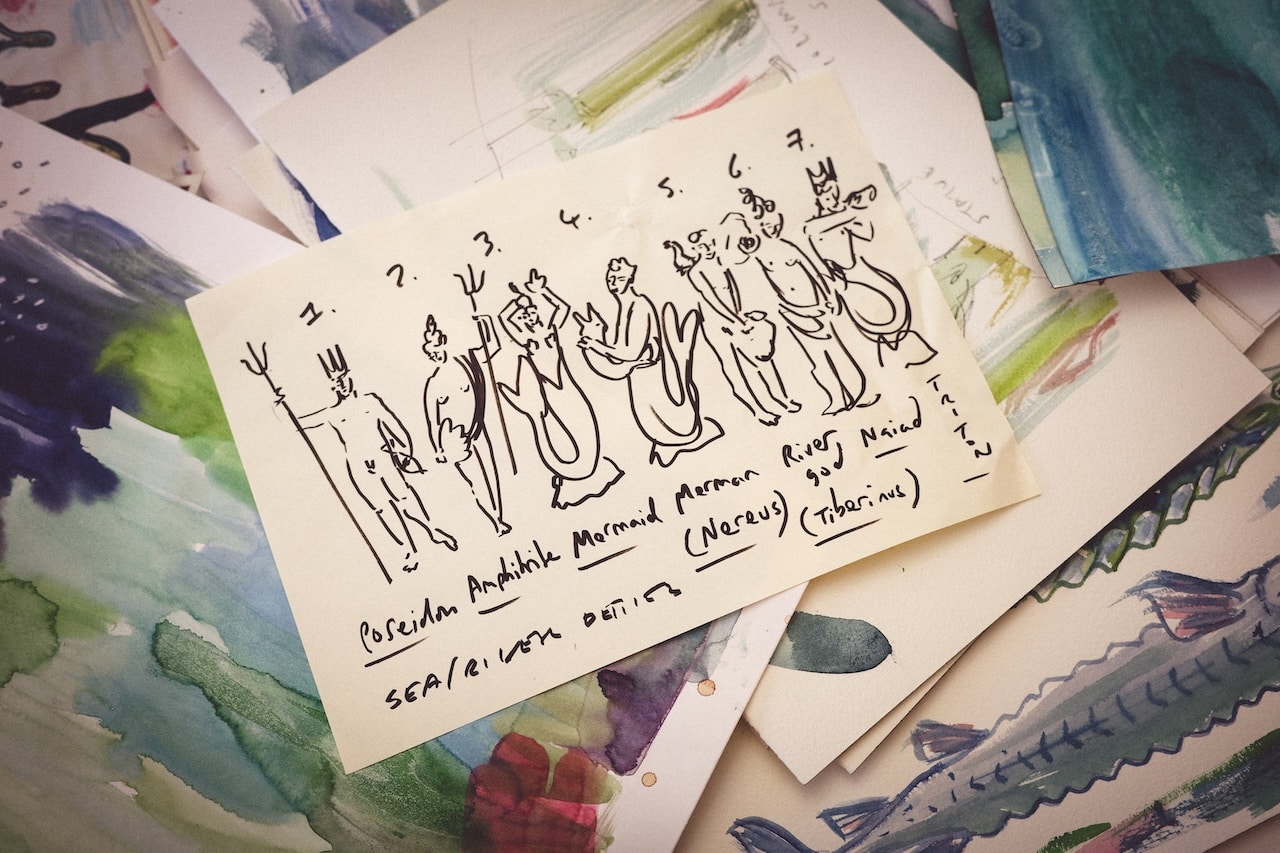 1. 2. 3. 4. 5. 6. 7.
Poseidon Amphitrite Mermaid Merman River god Naiad
(Nereus) (Tiberinus)
TRITON
SEA/RIVER DETIES
STATUE